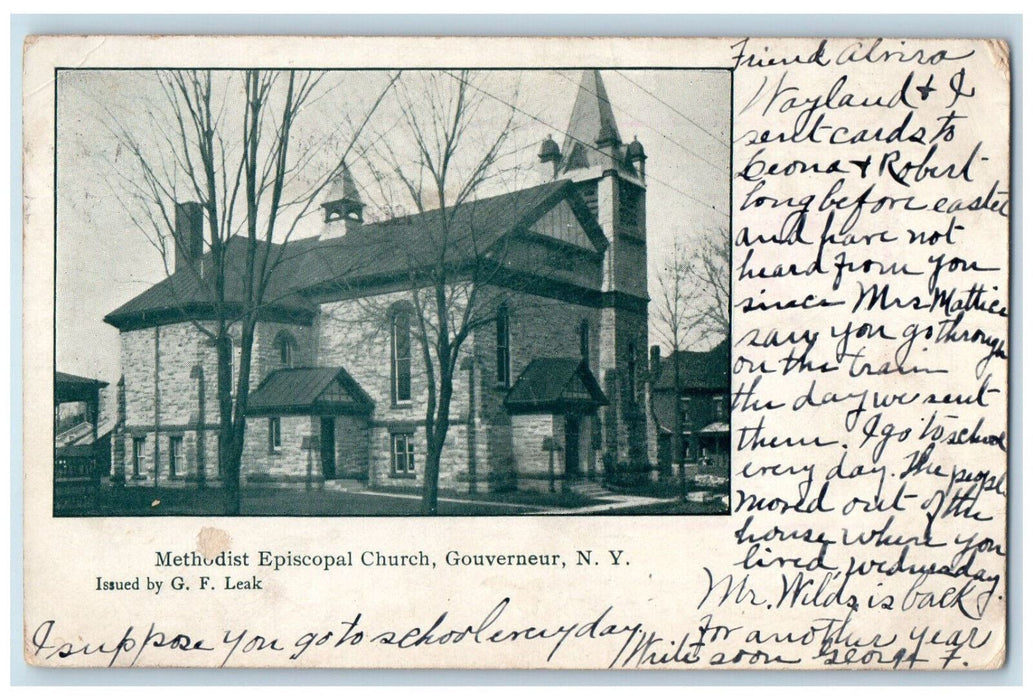 Friend Alvira
Wayland & I
sent cards to
Leona & Robert
long before easter
and have not
heard from you
since Mrs Mattice
saw you go through
on the train
the day we sent
them. I go to school
every day. The people
moved out of the
house where you
lived, wednesday.
Mr. Wilds is back
for another year
Write soon George F.
Methodist Episcopal Church, Gouverneur, N. Y.
Issued by G. F. Leak
I suppose you go to school every day.